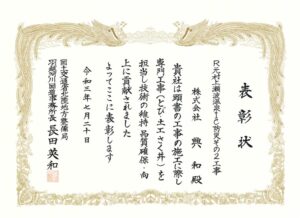 表彰状
R元村上瀬波温泉IC防災その2工事
株式会社 興和殿
貴社は頭書の工事の施工に際し
専門工事(とび・土工さく井)を
担当し技術の維持・品質確保・向
上に貢献されました
よってここに表彰します
令和三年七月二十日
国土交通省北陸地方整備局
羽越河川国道事務所長 長田英和